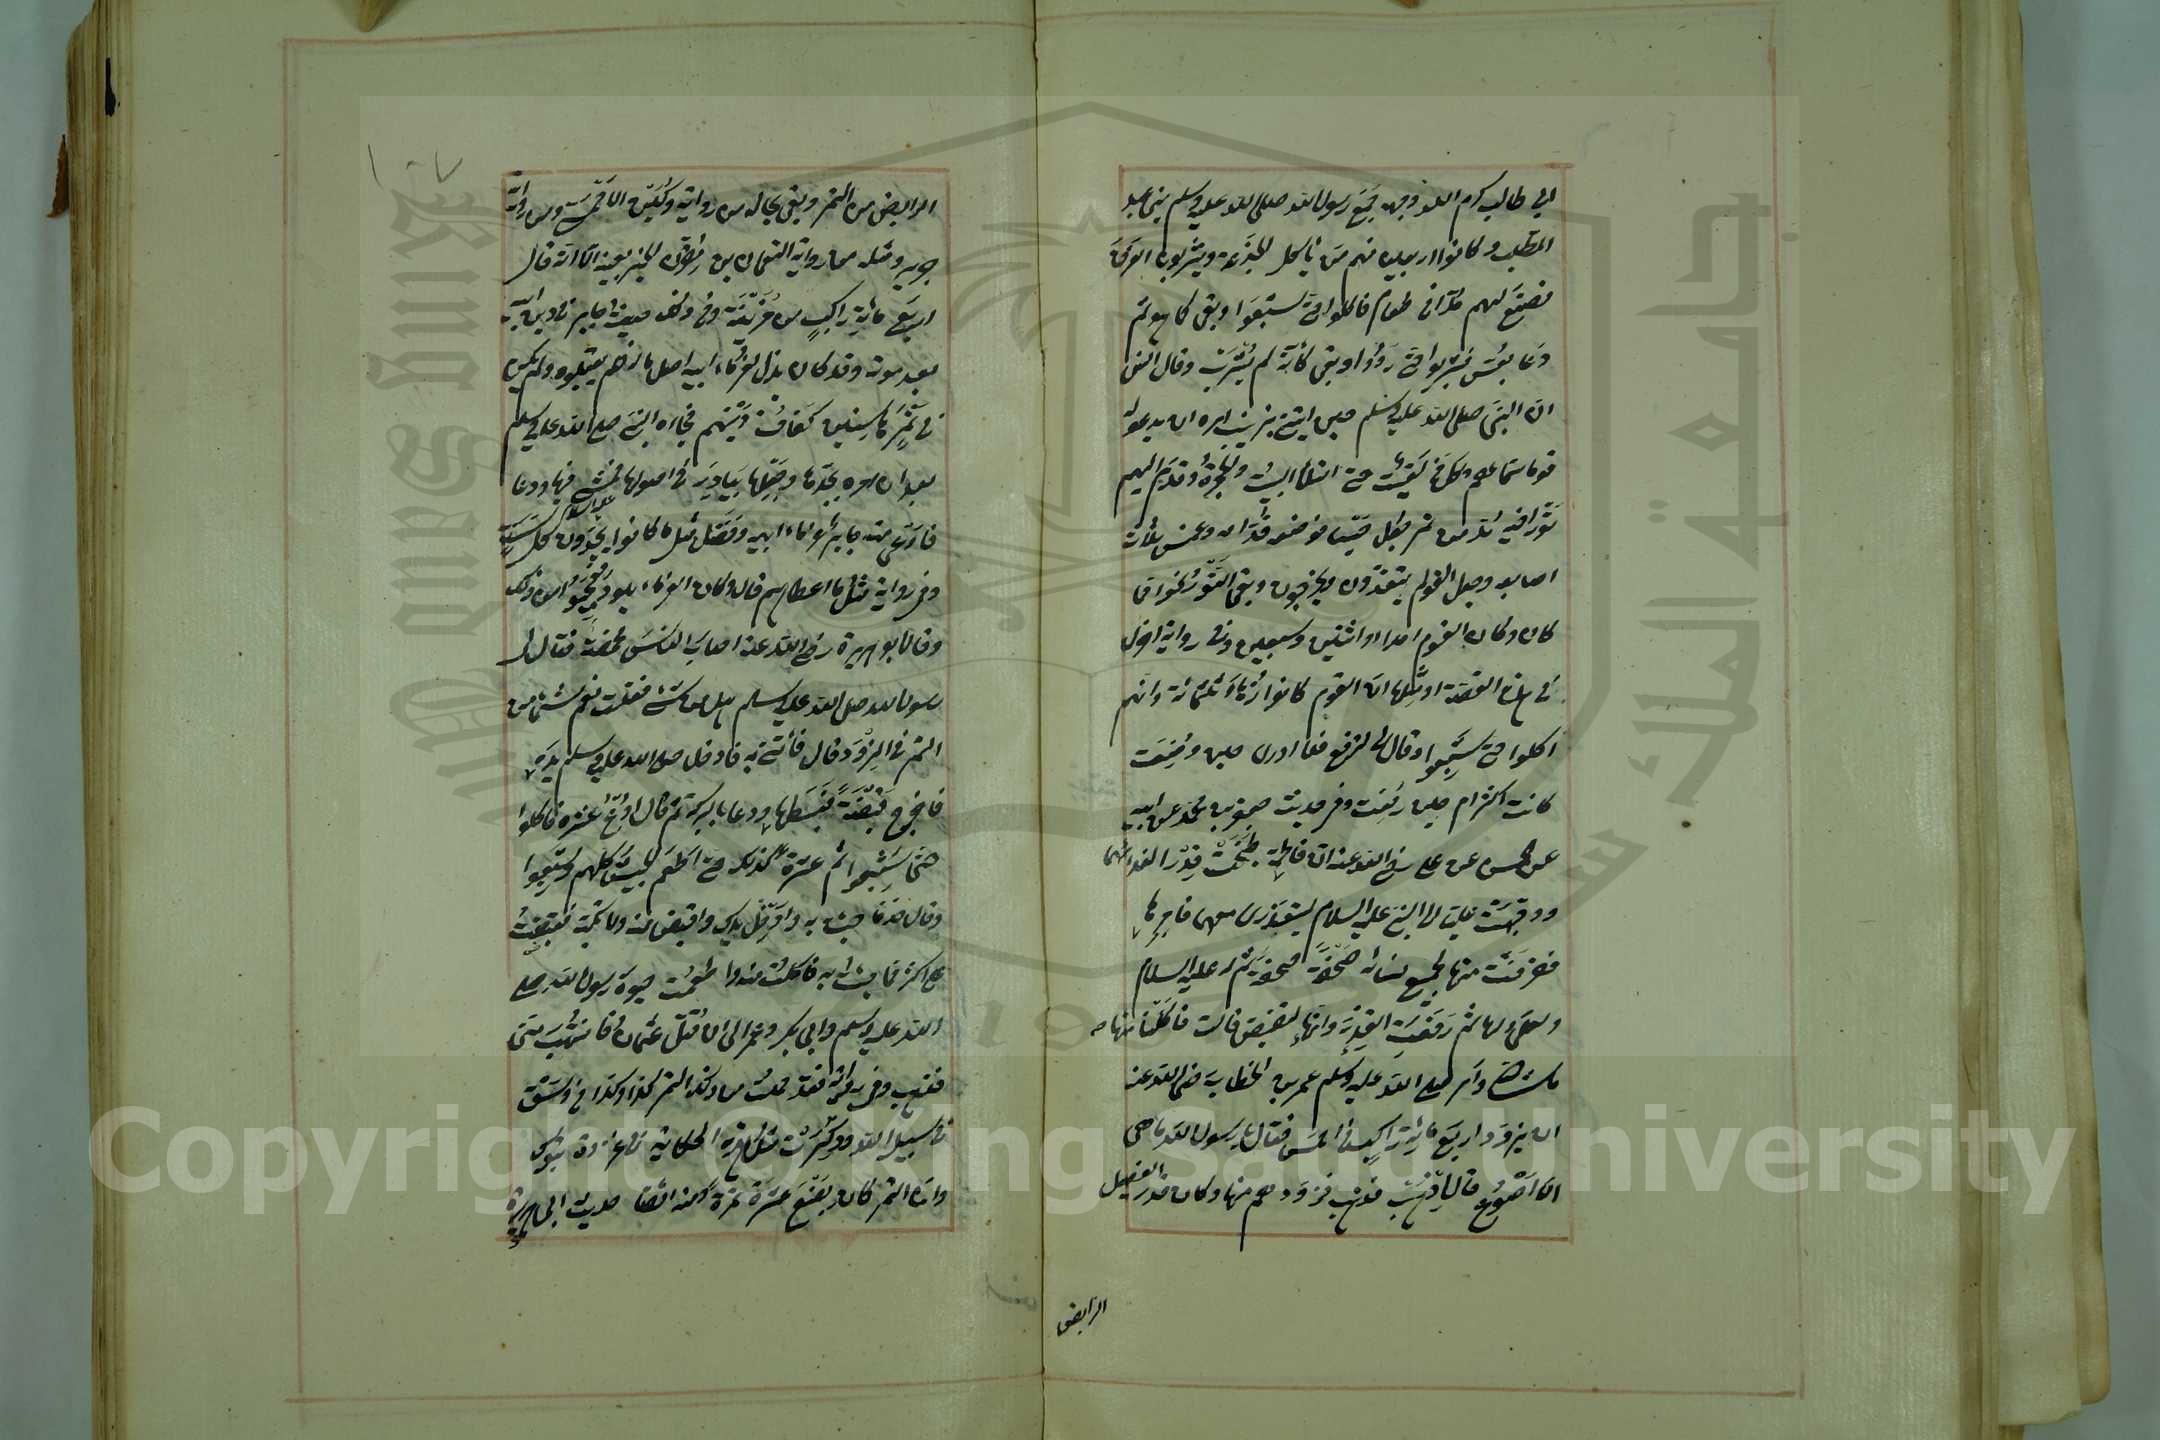 ابي طالب كرم الله وجهه جمع رسول الله صلى الله عليه وسلم بني عبد
المطلب وكانوا اربعين منهم من ياكل الجذعة ويشرب الفرق
فصنع لهم مدا في طعام فاكلوا حتى شبعوا وبقى كما هو ثم
دعا بعس فشربوا حتى رووا وبقى كانه لم يشرب وقال انس
ان النبي صلى الله عليه وسلم حين ابتنى بزينب امره ان يدعو له
قوما سماهم وكل من لقيت حتى امتلا البيت والحجرة وقدم اليهم
تورا فيه قدر مد من تمر جعل حيسا فوضعه قدامه وغمس ثلاث
اصابعه وجعل القوم يتغدون ويخرجون وبقى التور نحوا مما
كان وكان القوم احدا او اثنين وسبعين وفي رواية اخرى
في هذه القصة او مثلها ان القوم كانوا زهاء ثلثمائة وانهم
اكلوا حتى شبعوا وقال لي ارفع فما ادري حين وضعت
كانت اكثر ام حين رفعت وفي حديث جعفر بن محمد عن ابيه
عن علي رضي الله عنه ان فاطمة طبخت قدرا لغدائهما
ووجهت عليا الى النبي عليه السلام ليتغذى معهما فامرها
فغرفت منها لجميع نسائه صحفة صحفة ثم له عليه السلام
ولعلي ولها ثم رفعت القدر وانها لتفيض قالت فاكلنا منها
ما شاء الله وامر صلى الله عليه وسلم عمر بن الخطاب رضي الله عنه
ان يزود اربع مائة راكب من احمس فقال يا رسول الله ما هي
الا اصوع قال اذهب فذهب فزودهم منها وكان قدر الفصيل
الرابض
الرابض من التمر وبقى بحاله من رواية دكين الاحمسي ومن رواية
جرير ومثله من رواية النعمان بن مقرن الخبر بعينه الا انه قال
اربع مائة راكب من مزينة ومن ذلك حديث جابر في دين ابيه
بعد موته وقد كان بذل لغرماء ابيه اصل ماله فلم يقبلوه ولم يكن
في ثمرها سنين كفاف دينهم فجاءه النبي صلى الله عليه وسلم
بعد ان امره بجدها وجعلها بيادر في اصولها فمشى فيها ودعا
فاوفى منه جابر غرماء ابيه وفضل مثل ما كانوا يجدون كل سنة
وفي رواية مثل ما اعطاهم قال وكان الغرماء يهود فعجبوا من ذلك
وقال ابو هريرة رضي الله عنه اصاب الناس مخمصة فقال لي
رسول الله صلى الله عليه وسلم هل من شئ فقلت نعم شئ من
التمر في المزود قال فاتني به فادخل صلى الله عليه وسلم يده
فاخرج قبضة فبسطها ودعا بالبركة ثم قال ادع عشرة فاكلوا
حتى شبعوا ثم عشرة كذلك حتى اطعم الجيش كلهم وشبعوا
وقال خذ ما جئت به وادخل يدك واقبض منه ولا تكبه فقبضت
على اكثر مما جئت به فاكلت منه واطعمت حيوة رسول الله صلى
الله عليه وسلم وابي بكر وعمر الى ان قتل عثمان فانتهب مني
فذهب وفي رواية فقد حملت من ذلك التمر كذا وكذا من وسق
في سبيل الله وذكرت مثل هذه الحكاية في غزوة تبوك
وان التمر كان بضع عشرة تمرة ومنه ايضا حديث ابي هريرة
١٠٧
Copyright © King Saud University
King Saud University
جامعة الملك سعود